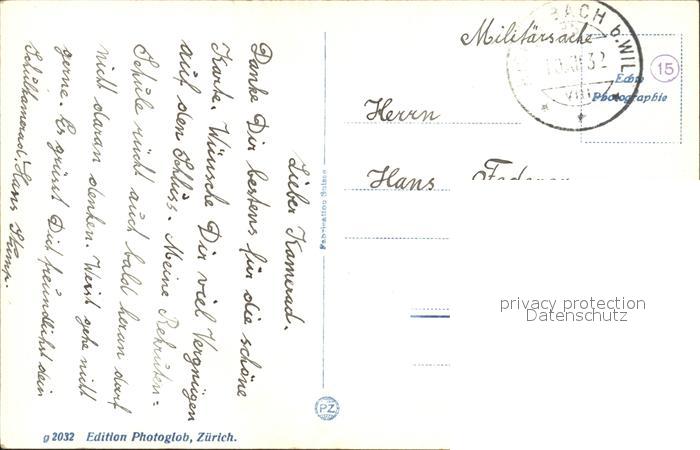 Lieber Kamerad.
Danke Dir bestens für die schöne
Karte. Wünsche Dir viel Vergnügen
auf den Schluss. Meine Rekruten=
Schule rückt auch bald heran darf
nicht daran denken. Weist gehe nicht
gerne. Es grüsst Dich freundlichst dein
Schulkamerad: Hans
Militärsache
BACH b. WIL
32
VIII
15
Echte
Photographie
Herrn
Hans
privacy protection
Datenschutz
PZ
g 2032 Edition Photoglob, Zürich.